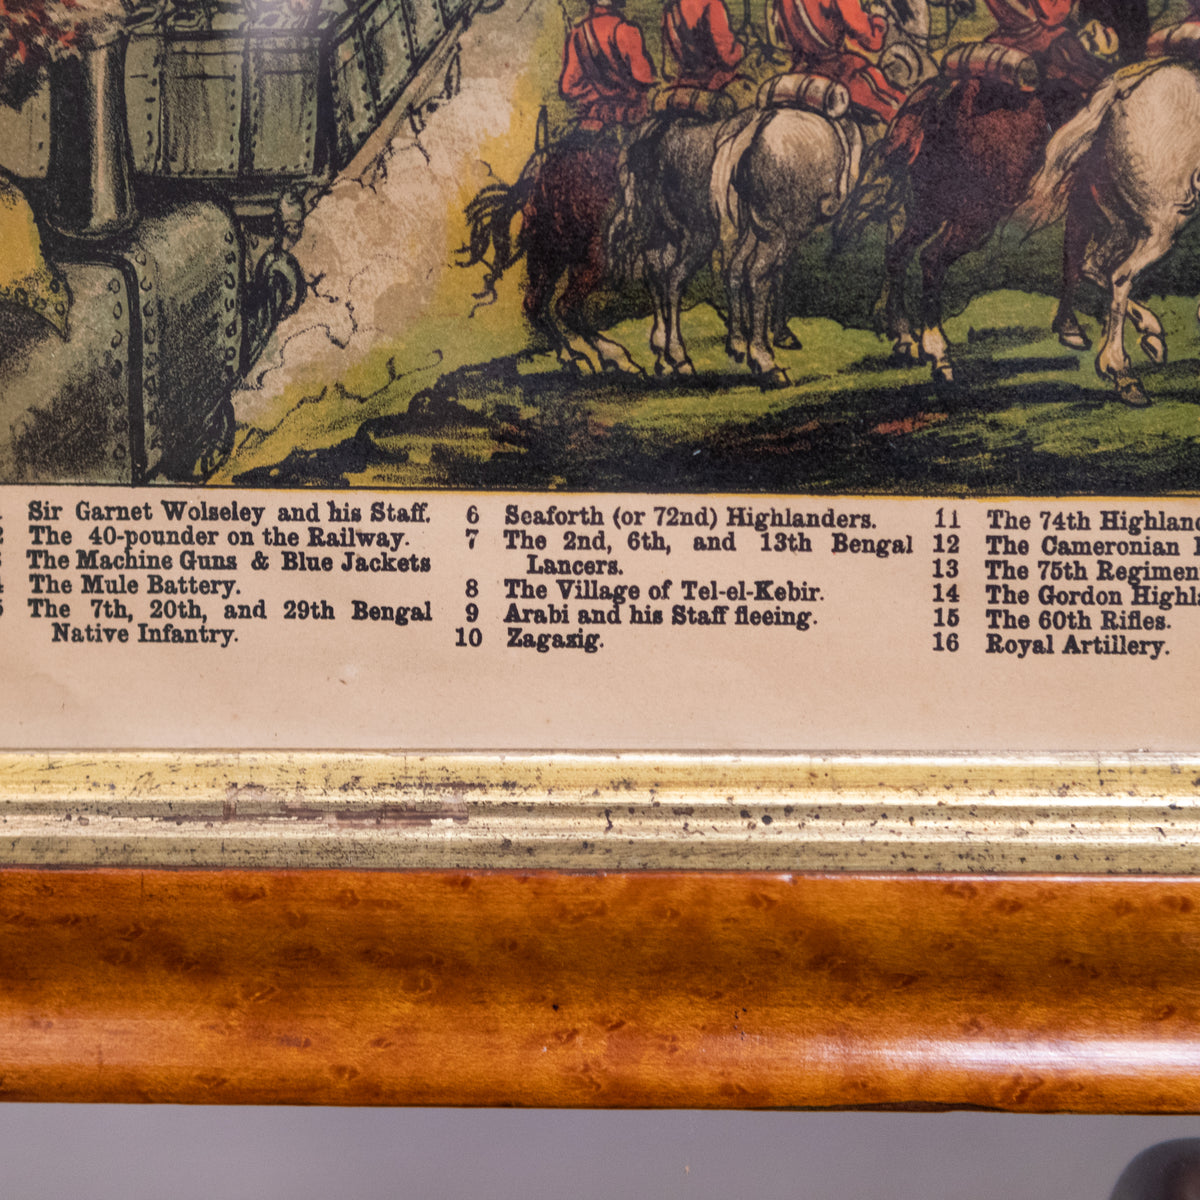 Sir Garnet Wolseley and his Staff.
The 40-pounder on the Railway.
The Machine Guns & Blue Jackets
The Mule Battery.
The 7th, 20th, and 29th Bengal
Native Infantry.
6 Seaforth (or 72nd) Highlanders.
7 The 2nd, 6th, and 13th Bengal
Lancers.
8 The Village of Tel-el-Kebir.
9 Arabi and his Staff fleeing.
10 Zagazig.
11 The 74th Highlan
12 The Cameronian
13 The 75th Regimen
14 The Gordon Highl
15 The 60th Rifles.
16 Royal Artillery.